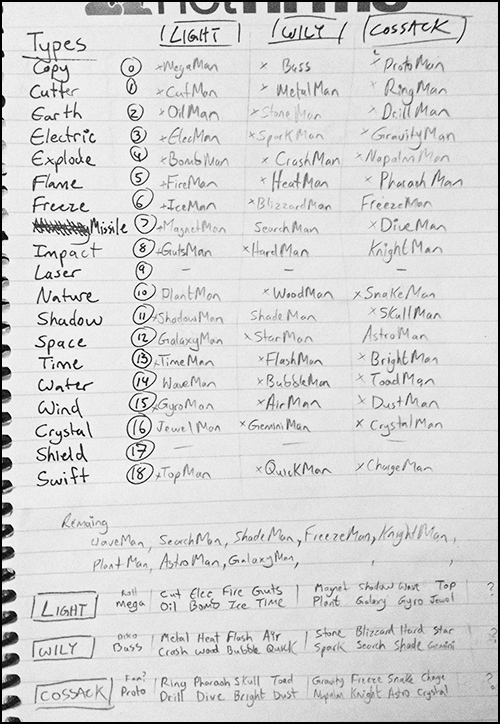 Types | LIGHT | | WILY | | COSSACK |
Copy 0 xMegaMan x Bass x ProtoMan
Cutter 1 xCutMan x MetalMan x RingMan
Earth 2 xOilMan xStoneMan x DrillMan
Electric 3 xElecMan xSparkMan xGravityMan
Explode 4 xBombMan x CrashMan xNapalmMan
Flame 5 xFireMan x HeatMan x PharaohMan
Freeze 6 xIceMan xBlizzardMan FreezeMan
Missile 7 xMagnetMan SearchMan x DiveMan
Impact 8 xGutsMan xHardMan KnightMan
Laser 9 - - -
Nature 10 PlantMan xWoodMan xSnakeMan
Shadow 11 xShadowMan ShadeMan x SkullMan
Space 12 GalaxyMan xStarMan AstroMan
Time 13 xTimeMan xFlashMan xBrightMan
Water 14 WaveMan xBubbleMan x ToadMan
Wind 15 xGyroMan xAirMan xDustMan
Crystal 16 JewelMan xGeminiMan x CrystalMan
Shield 17 - -
Swift 18 xTopMan xQuickMan xChargeMan
Remaing
WaveMan, SearchMan, ShadeMan, FreezeMan, KnightMan,
PlantMan, AstroMan, GalaxyMan, , ,
LIGHT Roll Mega | Cut Elec Fire Guts | Magnet Shadow Wave Top | ?
Oil Bomb Ice Time | Plant Galaxy Gyro Jewel
WILY Bass | Metal Heat Flash Air | Stone Blizzard Hard Star | ?
Crash Wood Bubble Quick | Spark Search Shade Gemini
COSSACK Proto | Ring Pharaoh Skull Toad | Gravity Freeze Snake Charge | ?
Drill Dive Bright Dust | Napalm Knight Astro Crystal